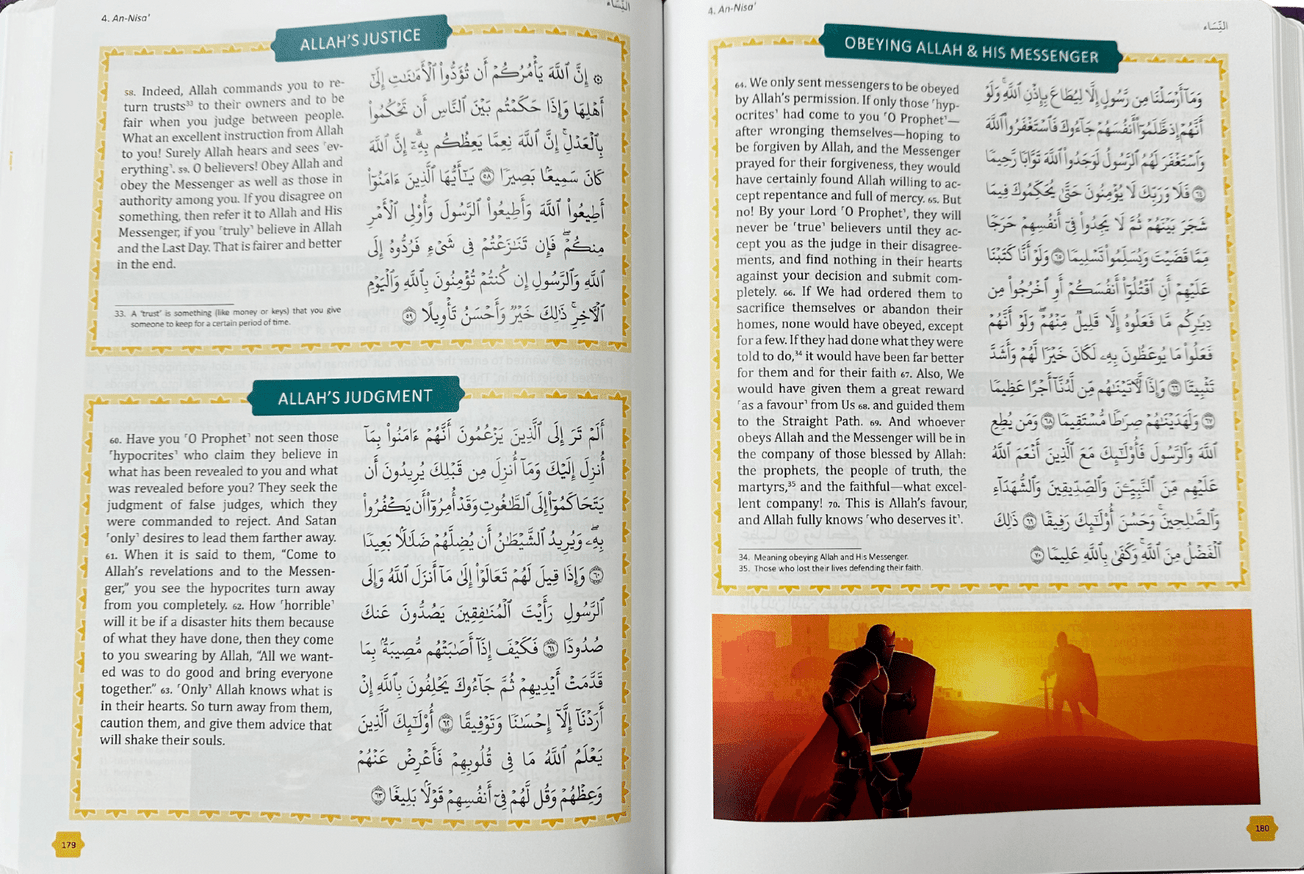 4. An-Nisa'
النِّسَاء
ALLAH'S JUSTICE
58. Indeed, Allah commands you to re-
turn trusts³³ to their owners and to be
fair when you judge between people.
What an excellent instruction from Allah
to you! Surely Allah hears and sees ˹ev-
erything˺. 59. O believers! Obey Allah and
obey the Messenger as well as those in
authority among you. If you disagree on
something, then refer it to Allah and His
Messenger, if you ˹truly˺ believe in Allah
and the Last Day. That is fairer and better
in the end.
33. A 'trust' is something (like money or keys) that you give
someone to keep for a certain period of time.
۞ إِنَّ ٱللَّهَ يَأْمُرُكُمْ أَن تُؤَدُّوا۟ ٱلْأَمَـٰنَـٰتِ إِلَىٰٓ
أَهْلِهَا وَإِذَا حَكَمْتُم بَيْنَ ٱلنَّاسِ أَن تَحْكُمُوا۟
بِٱلْعَدْلِ ۚ إِنَّ ٱللَّهَ نِعِمَّا يَعِظُكُم بِهِۦٓ ۗ إِنَّ ٱللَّهَ
كَانَ سَمِيعًۢا بَصِيرًا ٥٨ يَـٰٓأَيُّهَا ٱلَّذِينَ ءَامَنُوٓا۟
أَطِيعُوا۟ ٱللَّهَ وَأَطِيعُوا۟ ٱلرَّسُولَ وَأُو۟لِى ٱلْأَمْرِ
مِنكُمْ ۖ فَإِن تَنَـٰزَعْتُمْ فِى شَىْءٍ فَرُدُّوهُ إِلَى
ٱللَّهِ وَٱلرَّسُولِ إِن كُنتُمْ تُؤْمِنُونَ بِٱللَّهِ وَٱلْيَوْمِ
ٱلْـَٔاخِرِ ۚ ذَٰلِكَ خَيْرٌ وَأَحْسَنُ تَأْوِيلًا ٥٩
ALLAH'S JUDGMENT
60. Have you ˹O Prophet˺ not seen those
˹hypocrites˺ who claim they believe in
what has been revealed to you and what
was revealed before you? They seek the
judgment of false judges, which they
were commanded to reject. And Satan
˹only˺ desires to lead them farther away.
61. When it is said to them, "Come to
Allah's revelations and to the Messen-
ger," you see the hypocrites turn away
from you completely. 62. How ˹horrible˺
will it be if a disaster hits them because
of what they have done, then they come
to you swearing by Allah, "All we want-
ed was to do good and bring everyone
together." 63. ˹Only˺ Allah knows what is
in their hearts. So turn away from them,
caution them, and give them advice that
will shake their souls.
أَلَمْ تَرَ إِلَى ٱلَّذِينَ يَزْعُمُونَ أَنَّهُمْ ءَامَنُوا۟ بِمَآ
أُنزِلَ إِلَيْكَ وَمَآ أُنزِلَ مِن قَبْلِكَ يُرِيدُونَ أَن
يَتَحَاكَمُوٓا۟ إِلَى ٱلطَّـٰغُوتِ وَقَدْ أُمِرُوٓا۟ أَن يَكْفُرُوا۟
بِهِۦ ۖ وَيُرِيدُ ٱلشَّيْطَـٰنُ أَن يُضِلَّهُمْ ضَلَـٰلًۢا بَعِيدًا
٦٠ وَإِذَا قِيلَ لَهُمْ تَعَالَوْا۟ إِلَىٰ مَآ أَنزَلَ ٱللَّهُ وَإِلَى
ٱلرَّسُولِ رَأَيْتَ ٱلْمُنَـٰفِقِينَ يَصُدُّونَ عَنكَ
صُدُودًا ٦١ فَكَيْفَ إِذَآ أَصَـٰبَتْهُم مُّصِيبَةٌۢ بِمَا
قَدَّمَتْ أَيْدِيهِمْ ثُمَّ جَآءُوكَ يَحْلِفُونَ بِٱللَّهِ إِنْ
أَرَدْنَآ إِلَّآ إِحْسَـٰنًا وَتَوْفِيقًا ٦٢ أُو۟لَـٰٓئِكَ ٱلَّذِينَ
يَعْلَمُ ٱللَّهُ مَا فِى قُلُوبِهِمْ فَأَعْرِضْ عَنْهُمْ
وَعِظْهُمْ وَقُل لَّهُمْ فِىٓ أَنفُسِهِمْ قَوْلًۢا بَلِيغًا ٦٣
179
4. An-Nisa'
النِّسَاء
OBEYING ALLAH & HIS MESSENGER
64. We only sent messengers to be obeyed
by Allah's permission. If only those ˹hyp-
ocrites˺ had come to you ˹O Prophet˺—
after wronging themselves—hoping to
be forgiven by Allah, and the Messenger
prayed for their forgiveness, they would
have certainly found Allah willing to ac-
cept repentance and full of mercy. 65. But
no! By your Lord ˹O Prophet˺, they will
never be ˹true˺ believers until they ac-
cept you as the judge in their disagree-
ments, and find nothing in their hearts
against your decision and submit com-
pletely. 66. If We had ordered them to
sacrifice themselves or abandon their
homes, none would have obeyed, except
for a few. If they had done what they were
told to do,³⁴ it would have been far better
for them and for their faith 67. Also, We
would have given them a great reward
˹as a favour˺ from Us 68. and guided them
to the Straight Path. 69. And whoever
obeys Allah and the Messenger will be in
the company of those blessed by Allah:
the prophets, the people of truth, the
martyrs,³⁵ and the faithful—what excel-
lent company! 70. This is Allah's favour,
and Allah fully knows ˹who deserves it˺.
34. Meaning obeying Allah and His Messenger.
35. Those who lost their lives defending their faith.
وَمَآ أَرْسَلْنَا مِن رَّسُولٍ إِلَّا لِيُطَاعَ بِإِذْنِ ٱللَّهِ ۚ وَلَوْ
أَنَّهُمْ إِذ ظَّلَمُوٓا۟ أَنفُسَهُمْ جَآءُوكَ فَٱسْتَغْفَرُوا۟ ٱللَّهَ
وَٱسْتَغْفَرَ لَهُمُ ٱلرَّسُولُ لَوَجَدُوا۟ ٱللَّهَ تَوَّابًا رَّحِيمًا
٦٤ فَلَا وَرَبِّكَ لَا يُؤْمِنُونَ حَتَّىٰ يُحَكِّمُوكَ فِيمَا
شَجَرَ بَيْنَهُمْ ثُمَّ لَا يَجِدُوا۟ فِىٓ أَنفُسِهِمْ حَرَجًا
مِّمَّا قَضَيْتَ وَيُسَلِّمُوا۟ تَسْلِيمًا ٦٥ وَلَوْ أَنَّا كَتَبْنَا
عَلَيْهِمْ أَنِ ٱقْتُلُوٓا۟ أَنفُسَكُمْ أَوِ ٱخْرُجُوا۟ مِن
دِيَـٰرِكُم مَّا فَعَلُوهُ إِلَّا قَلِيلٌ مِّنْهُمْ ۖ وَلَوْ أَنَّهُمْ
فَعَلُوا۟ مَا يُوعَظُونَ بِهِۦ لَكَانَ خَيْرًا لَّهُمْ وَأَشَدَّ
تَثْبِيتًا ٦٦ وَإِذًا لَّـَٔاتَيْنَـٰهُم مِّن لَّدُنَّآ أَجْرًا عَظِيمًا
٦٧ وَلَهَدَيْنَـٰهُمْ صِرَٰطًا مُّسْتَقِيمًا ٦٨ وَمَن يُطِعِ
ٱللَّهَ وَٱلرَّسُولَ فَأُو۟لَـٰٓئِكَ مَعَ ٱلَّذِينَ أَنْعَمَ ٱللَّهُ
عَلَيْهِم مِّنَ ٱلنَّبِيِّـۧنَ وَٱلصِّدِّيقِينَ وَٱلشُّهَدَآءِ
وَٱلصَّـٰلِحِينَ ۚ وَحَسُنَ أُو۟لَـٰٓئِكَ رَفِيقًا ٦٩ ذَٰلِكَ
ٱلْفَضْلُ مِنَ ٱللَّهِ ۚ وَكَفَىٰ بِٱللَّهِ عَلِيمًا ٧٠
180